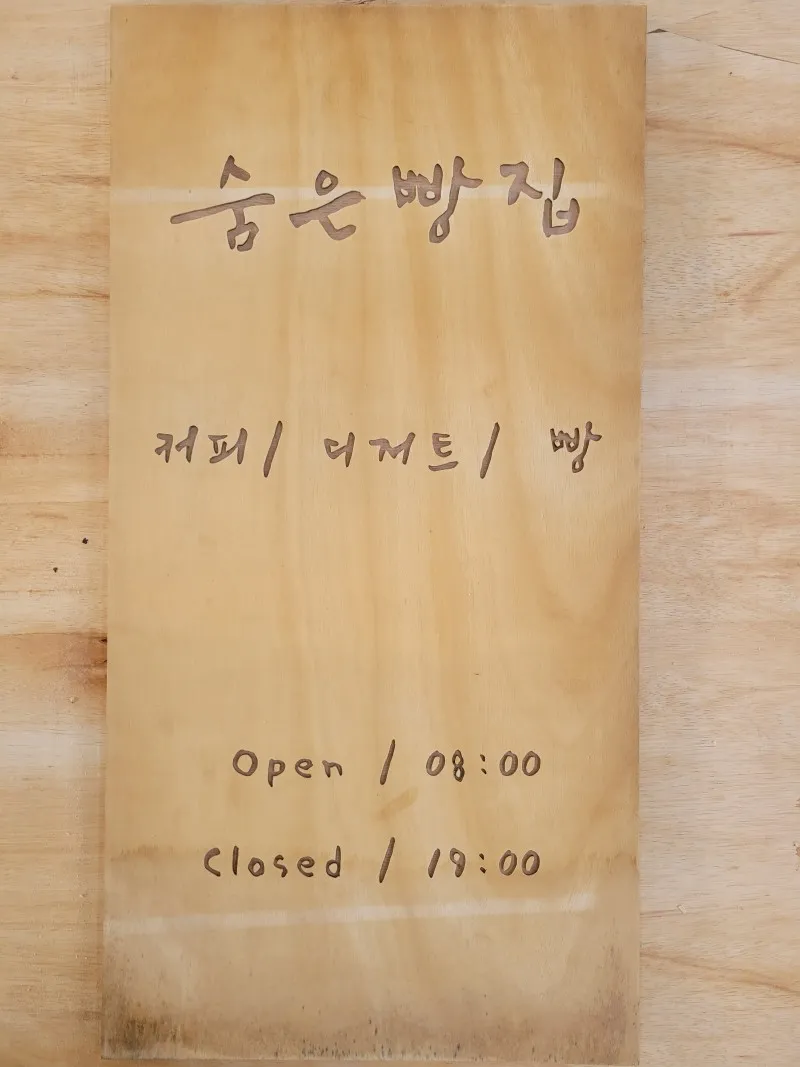 숨은빵집
커피/ 디저트/ 빵
Open / 08:00
Closed / 19:00